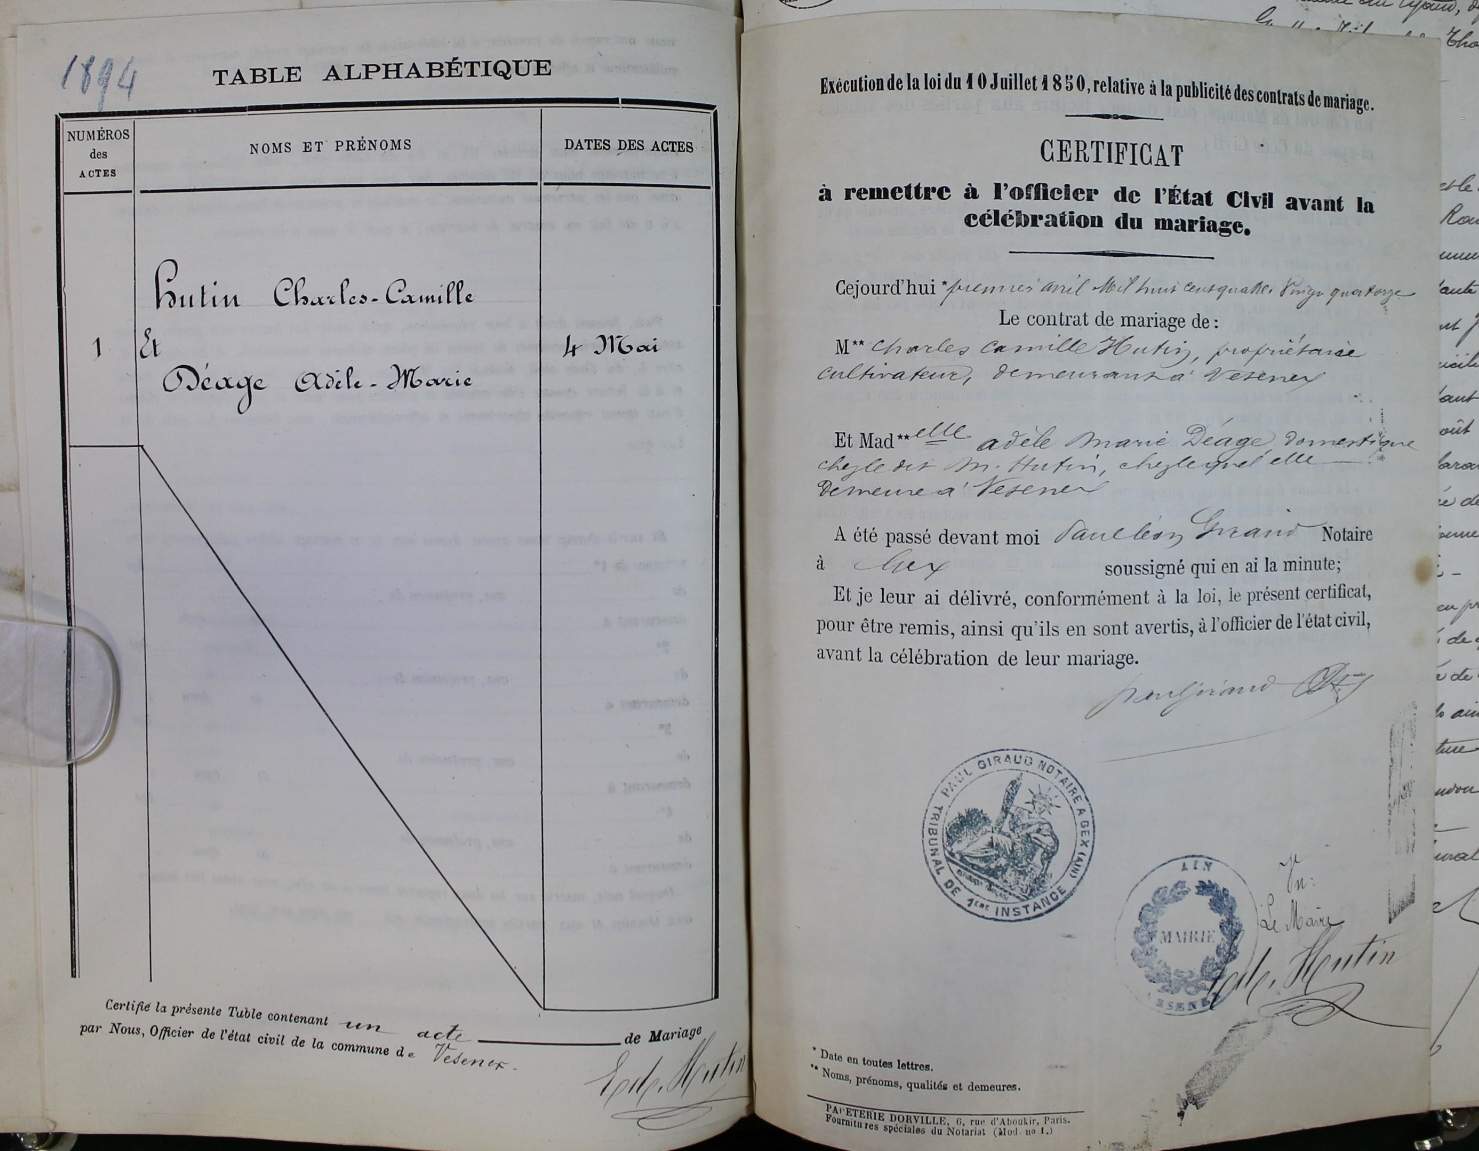 1894
TABLE ALPHABÉTIQUE
NUMÉROS
des
ACTES
NOMS ET PRÉNOMS
DATES DES ACTES
Hutin Charles-Camille
1 Et 4 Mai
Déage Adèle-Marie
Certifié la présente Table contenant un acte de Mariage
par Nous, Officier de l'état civil de la commune de Vesenex.
Ed. Hutin
Exécution de la loi du 10 Juillet 1850, relative à la publicité des contrats de mariage.
CERTIFICAT
à remettre à l'officier de l'État Civil avant la
célébration du mariage.
Cejourd'hui * premier avril Mil huit cent quatre Vingt quatorze
Le contrat de mariage de :
M** Charles Camille Hutin, propriétaire
cultivateur, demeurant à Vesenex
Et Mad**elle adèle Marie Déage, domestique
chez le dit M. Hutin, chez lequel elle
demeure à Vesenex
A été passé devant moi Paul Léon Giraud Notaire
à Gex soussigné qui en ai la minute;
Et je leur ai délivré, conformément à la loi, le présent certificat,
pour être remis, ainsi qu'ils en sont avertis, à l'officier de l'état civil,
avant la célébration de leur mariage.
Paul Giraud
PAUL GIRAUD NOTAIRE A GEX (AIN)
TRIBUNAL DE 1ERE INSTANCE
AIN
MAIRIE
VESENEX
Vu:
Le Maire
Ed. Hutin
* Date en toutes lettres.
** Noms, prénoms, qualités et demeures.
PAPETERIE DORVILLE, 6, rue d'Aboukir, Paris.
Fournitures spéciales du Notariat (Mod. no 1.)